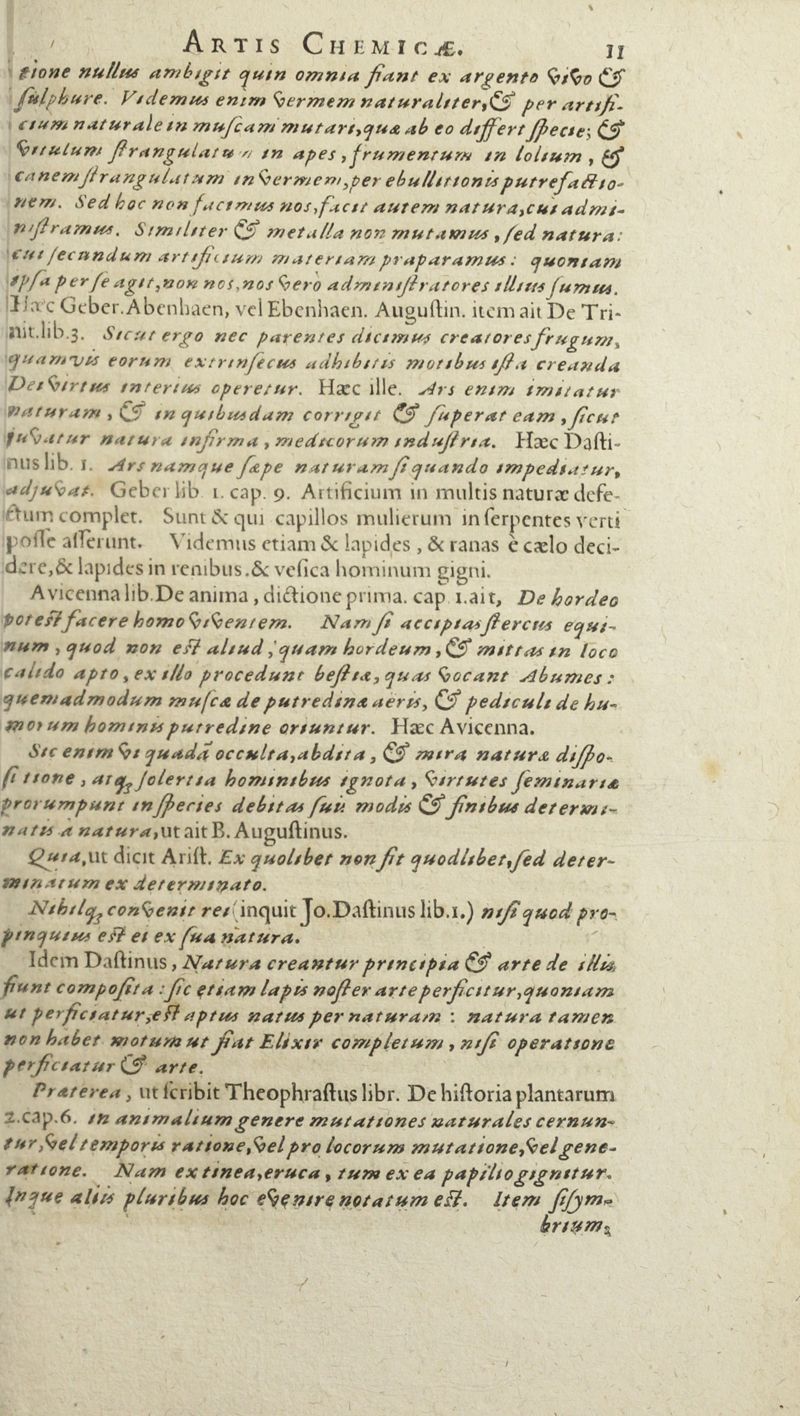 ARTIS CHEMICÆ. 11
tione nullus ambigit quin omnia fiant ex argento vivo &
sulphure. Videmus enim vermem naturaliter, & per artifi-
cium naturale in muscam mutari, quæ ab eo differt specie; &
vitulum strangulatum in apes, frumentum in lolium, &
canem strangulatum in vermem, per ebullitionis putrefactio-
nem. Sed hoc non facimus nos, facit autem natura, cui admi-
nistramus. Similiter & metalla non mutamus, sed natura:
cui secundum artificium materiam præparamus: quoniam
ipsa per se agit, non nos, nos vero administratores illius sumus.
Hæc Geber. Abenhaen, vel Ebenhaen. Augustin. item ait De Tri-
nit. lib. 3. Sicut ergo nec parentes dicimus creatores frugum,
quamvis eorum extrinsecus adhibitis motibus ista creanda
Dei virtus interius operetur. Hæc ille. Ars enim imitatur
naturam, & in quibusdam corrigit & superat eam, sicut
juvatur natura infirma, medicorum industria. Hæc Dasti-
nus lib. 1. Ars namque sæpe naturam si quando impediatur,
adjuvat. Geber lib 1. cap. 9. Artificium in multis naturæ defe-
ctum complet. Sunt & qui capillos mulierum in serpentes verti
posse asserunt. Videmus etiam & lapides, & ranas è cælo deci-
dere, & lapides in renibus. & vesica hominum gigni.
Avicenna lib. De anima, dictione prima. cap 1. ait, De hordeo
potest facere homo viventem. Nam si accipias stercus equi-
num, quod non est aliud, quam hordeum, & mittas in loco
calido apto, ex illo procedunt bestiæ, quas vocant Abumes:
quemadmodum muscæ de putredina aeris, & pediculi de hu-
morum hominis putredine oriuntur. Hæc Avicenna.
Sic enim vt quadã occulta, abdita, & mira naturæ dispo-
si tione, atq; solertia hominibus ignota, virtutes seminariæ
prorumpunt in species debitas suis modis & finibus determi-
natis a natura, ut ait B. Augustinus.
Quia, ut dicit Arist. Ex quolibet non fit quodlibet, sed deter-
minatum ex determinato.
Nihilq; convenit rei (inquit Jo. Dastinus lib. 1.) nisi quod pro-
pinquius est ei ex sua natura.
Idem Dastinus, Natura creantur principia & arte de illis
fiunt composita: sic etiam lapis noster arte perficitur, quoniam
ut perficiatur, est aptus natus per naturam: natura tamen
non habet motum ut fiat Elixir completum, nisi operatione
perficiatur & arte.
Præterea, ut scribit Theophrastus libr. De historia plantarum
2. cap. 6. in animalium genere mutationes naturales cernun-
tur, vel temporis ratione, vel pro locorum mutatione, vel gene-
ratione. Nam ex tinea, eruca, tum ex ea papilio gignitur.
Inque aliis pluribus hoc evenire notatum est. Item sisym-
brium,